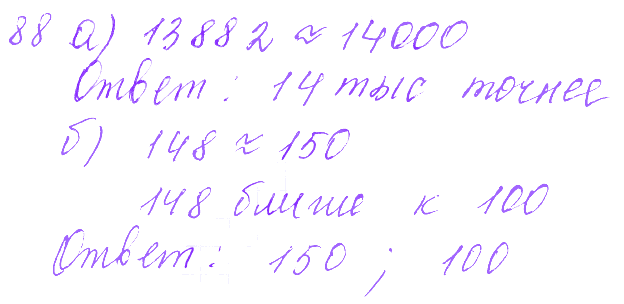 88 а) 13882 ≈ 14000
Ответ: 14 тыс точнее
б) 148 ≈ 150
148 ближе к 100
Ответ: 150 ; 100